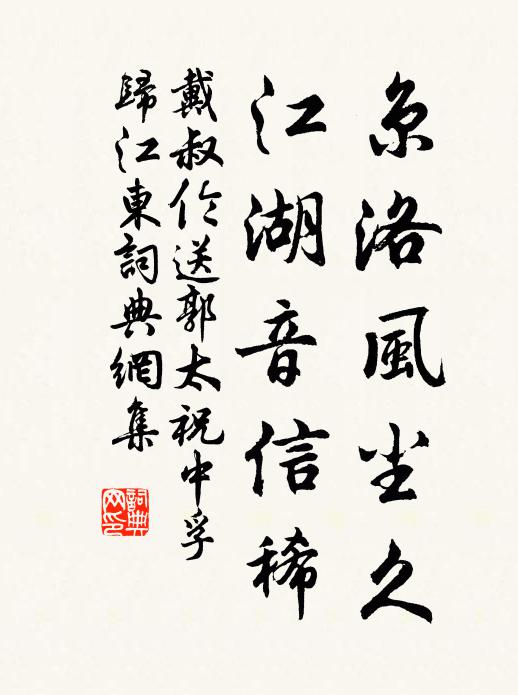 京洛風尘久
江湖音信稀
戴叔伦送郭太祝中孚
歸江東詞典網集
詞典
网印